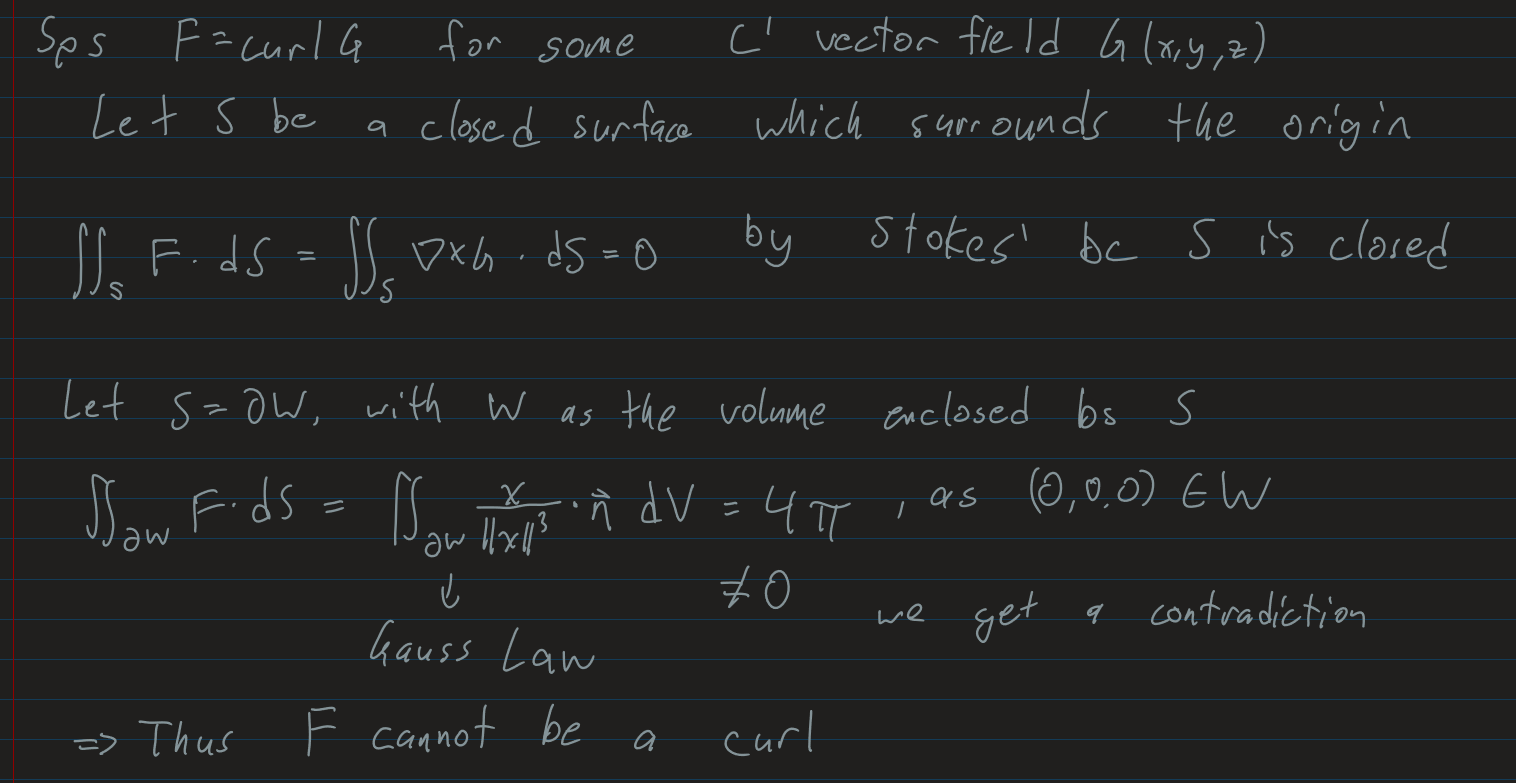 Sps F = curl G for some C' vector field G(x,y,z)
Let S be a closed surface which surrounds the origin
∬_S F · dS = ∬_S ∇×G · dS = 0 by Stokes' bc S is closed
Let S = ∂W, with W as the volume enclosed bs S
∬_∂W F · dS = ∬_∂W x/‖x‖³ · n⃗ dV = 4π, as (0,0,0) ∈ W
↓ ≠ 0 we get a contradiction
Gauss Law
⇒ Thus F cannot be a curl